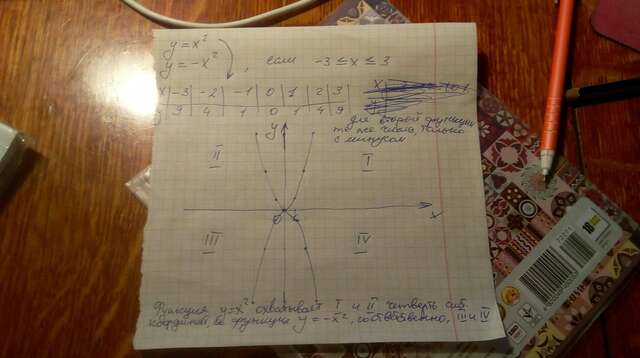 y = x²
y = -x² , если -3 ≤ x ≤ 3
x | -3 | -2 | -1 | 0 | 1 | 2 | 3
y | 9 | 4 | 1 | 0 | 1 | 4 | 9
для второй функции
те же числа, только
с минусом
y
II I
0 1 x
III IV
Функция y=x² охватывает I и II четверть сист.
координат, а функция y = -x², соответственно, III и IV